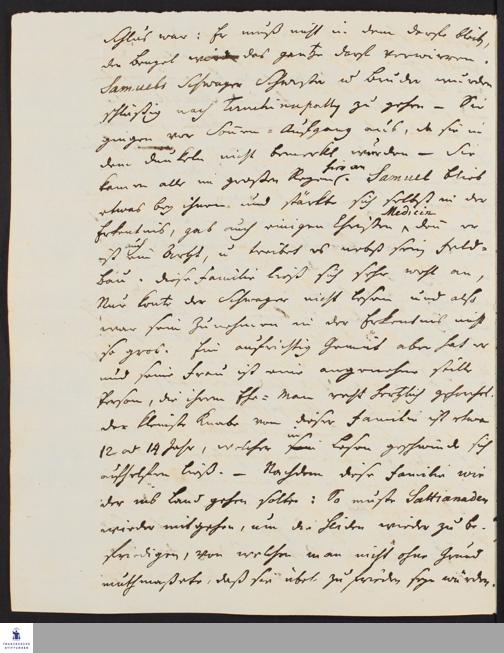 Schluß war: Er muß nicht in dem dorfe bleib,
der Bengel das gantze dorf verwirren.
Samuels Schwager Schwester u Bruder wurden
schlüßig nach Tirutschinapally zu gehen – Sie
gingen vor Sonnen-Aufgang aus, da sie in
dem dunkeln nicht bemerkt würden – Sie
kamen alle im großen Regen hier an. Samuel blieb
etwas bey ihnen und stärkte sich selbst in der
Erkentnis, gab auch einigen Christen Medicin, denn er
ist auch ein Artzt, u treibet es nebst sein Feld-
bau. diese Familie ließ sich sehr wohl an,
Nur konte der Schwager nicht lesen und also
war sein Zunehmen in der Erkentnis nicht
so gros. Ein aufrichtig Gemüt aber hat er
und seine Frau ist eine angenehme stille
Person, die ihrem Ehe-Man recht hertzlich gehorchet.
der kleinste Knabe von dieser Familie ist etwa
12 od 14 Jahr, welcher im Lesen geschwinde sich
aufhelfen ließ. – Nachdem diese Familie wie
der ins Land gehen solte: So muste Sattianaden
wieder mitgehen, um die Heiden wieder zu be-
friedigen, von welchen man nicht ohne Grund
muthmaßete, daß sie übel zu frieden seyn würden.
FRANCKESCHE
STIFTUNGEN